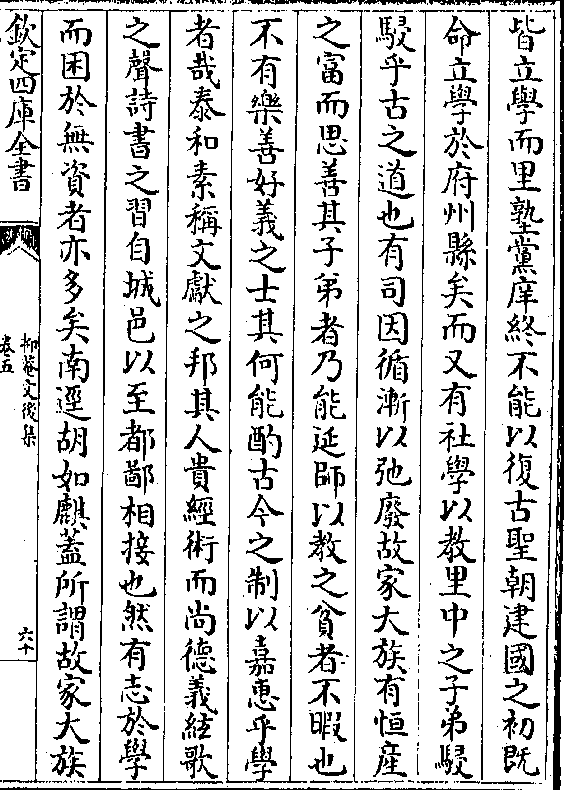 皆立學而里塾黨庠終不能以復古聖朝建國之初既
命立學於府州縣矣而又有社學以教里中之子弟駸
駸乎古之道也有司因循漸以弛廢故家大族有恒産
之富而思善其子弟者乃能延師以教之貧者不暇也
不有樂善好義之士其何能酌古今之制以嘉惠乎學
者哉泰和素稱文獻之邦其人貴經術而尚德義絃歌
之聲詩書之習自城邑以至都鄙相接也然有志於學
而困於無資者亦多矣南逕胡如麒蓋所謂故家大族
欽定四庫全書
抑菴文後集
卷五
六十